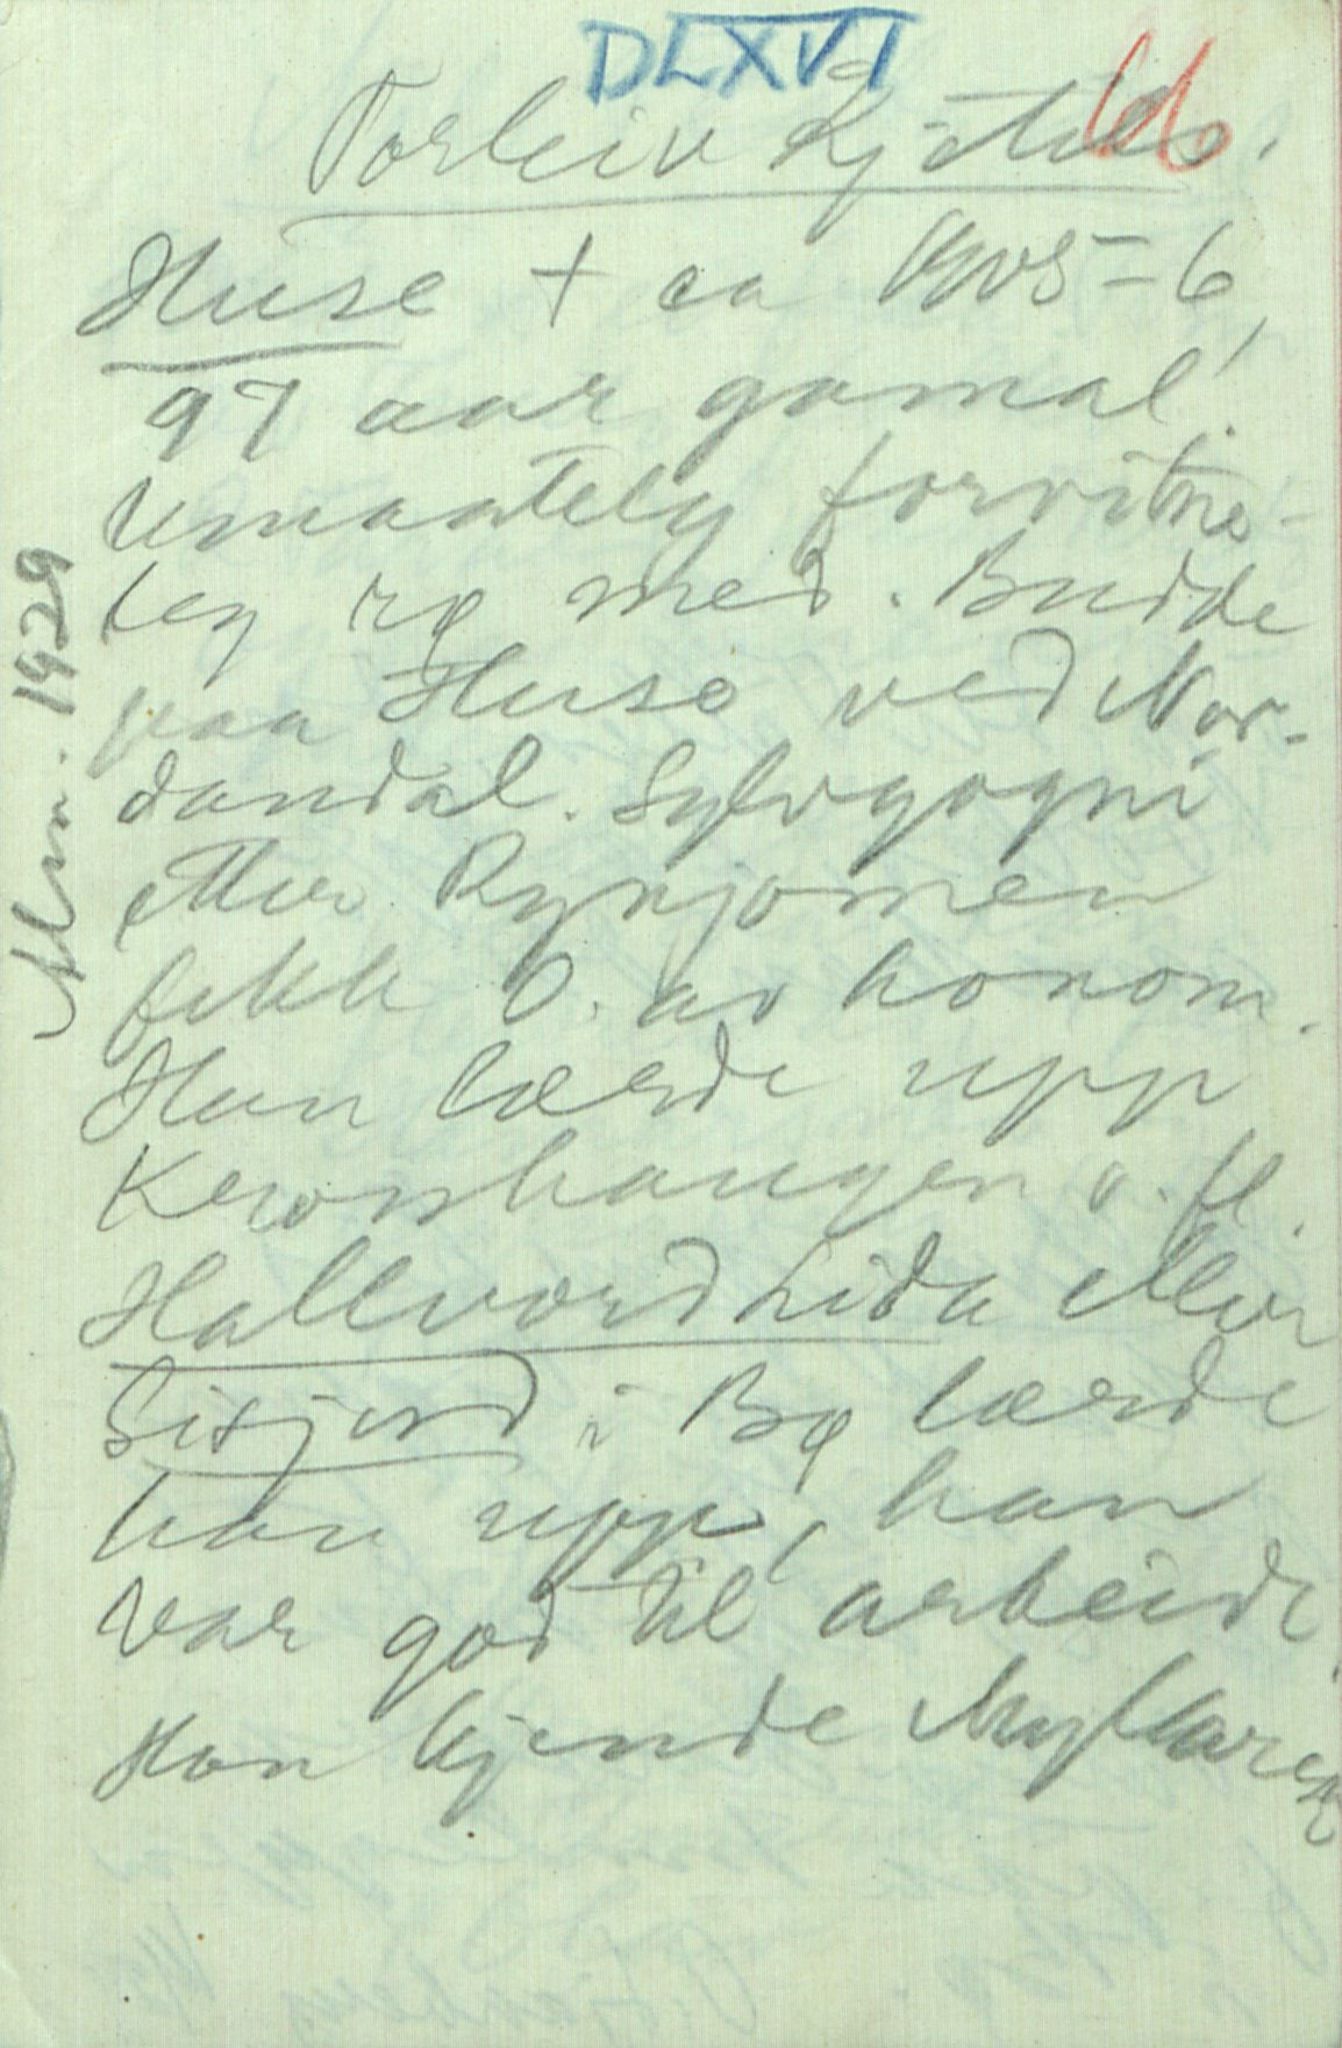 DLXVI
66
Torleiv Kjetils.
Huse + ca 1905-6,
97 aar gamal!
Umaateleg forvitne-
leg re med. Budde
paa Huso ved Nor-
dandal. Sylvgogni
etter Rynjomen
fekk O. av honom.
Han lærde upp
Kevonshaugen o. fl.
Hallvord Lida eller
Sisjord i Bø lærde
han upp, han
var god til arbeide
Han kjende Myllaren
Mm. 1929